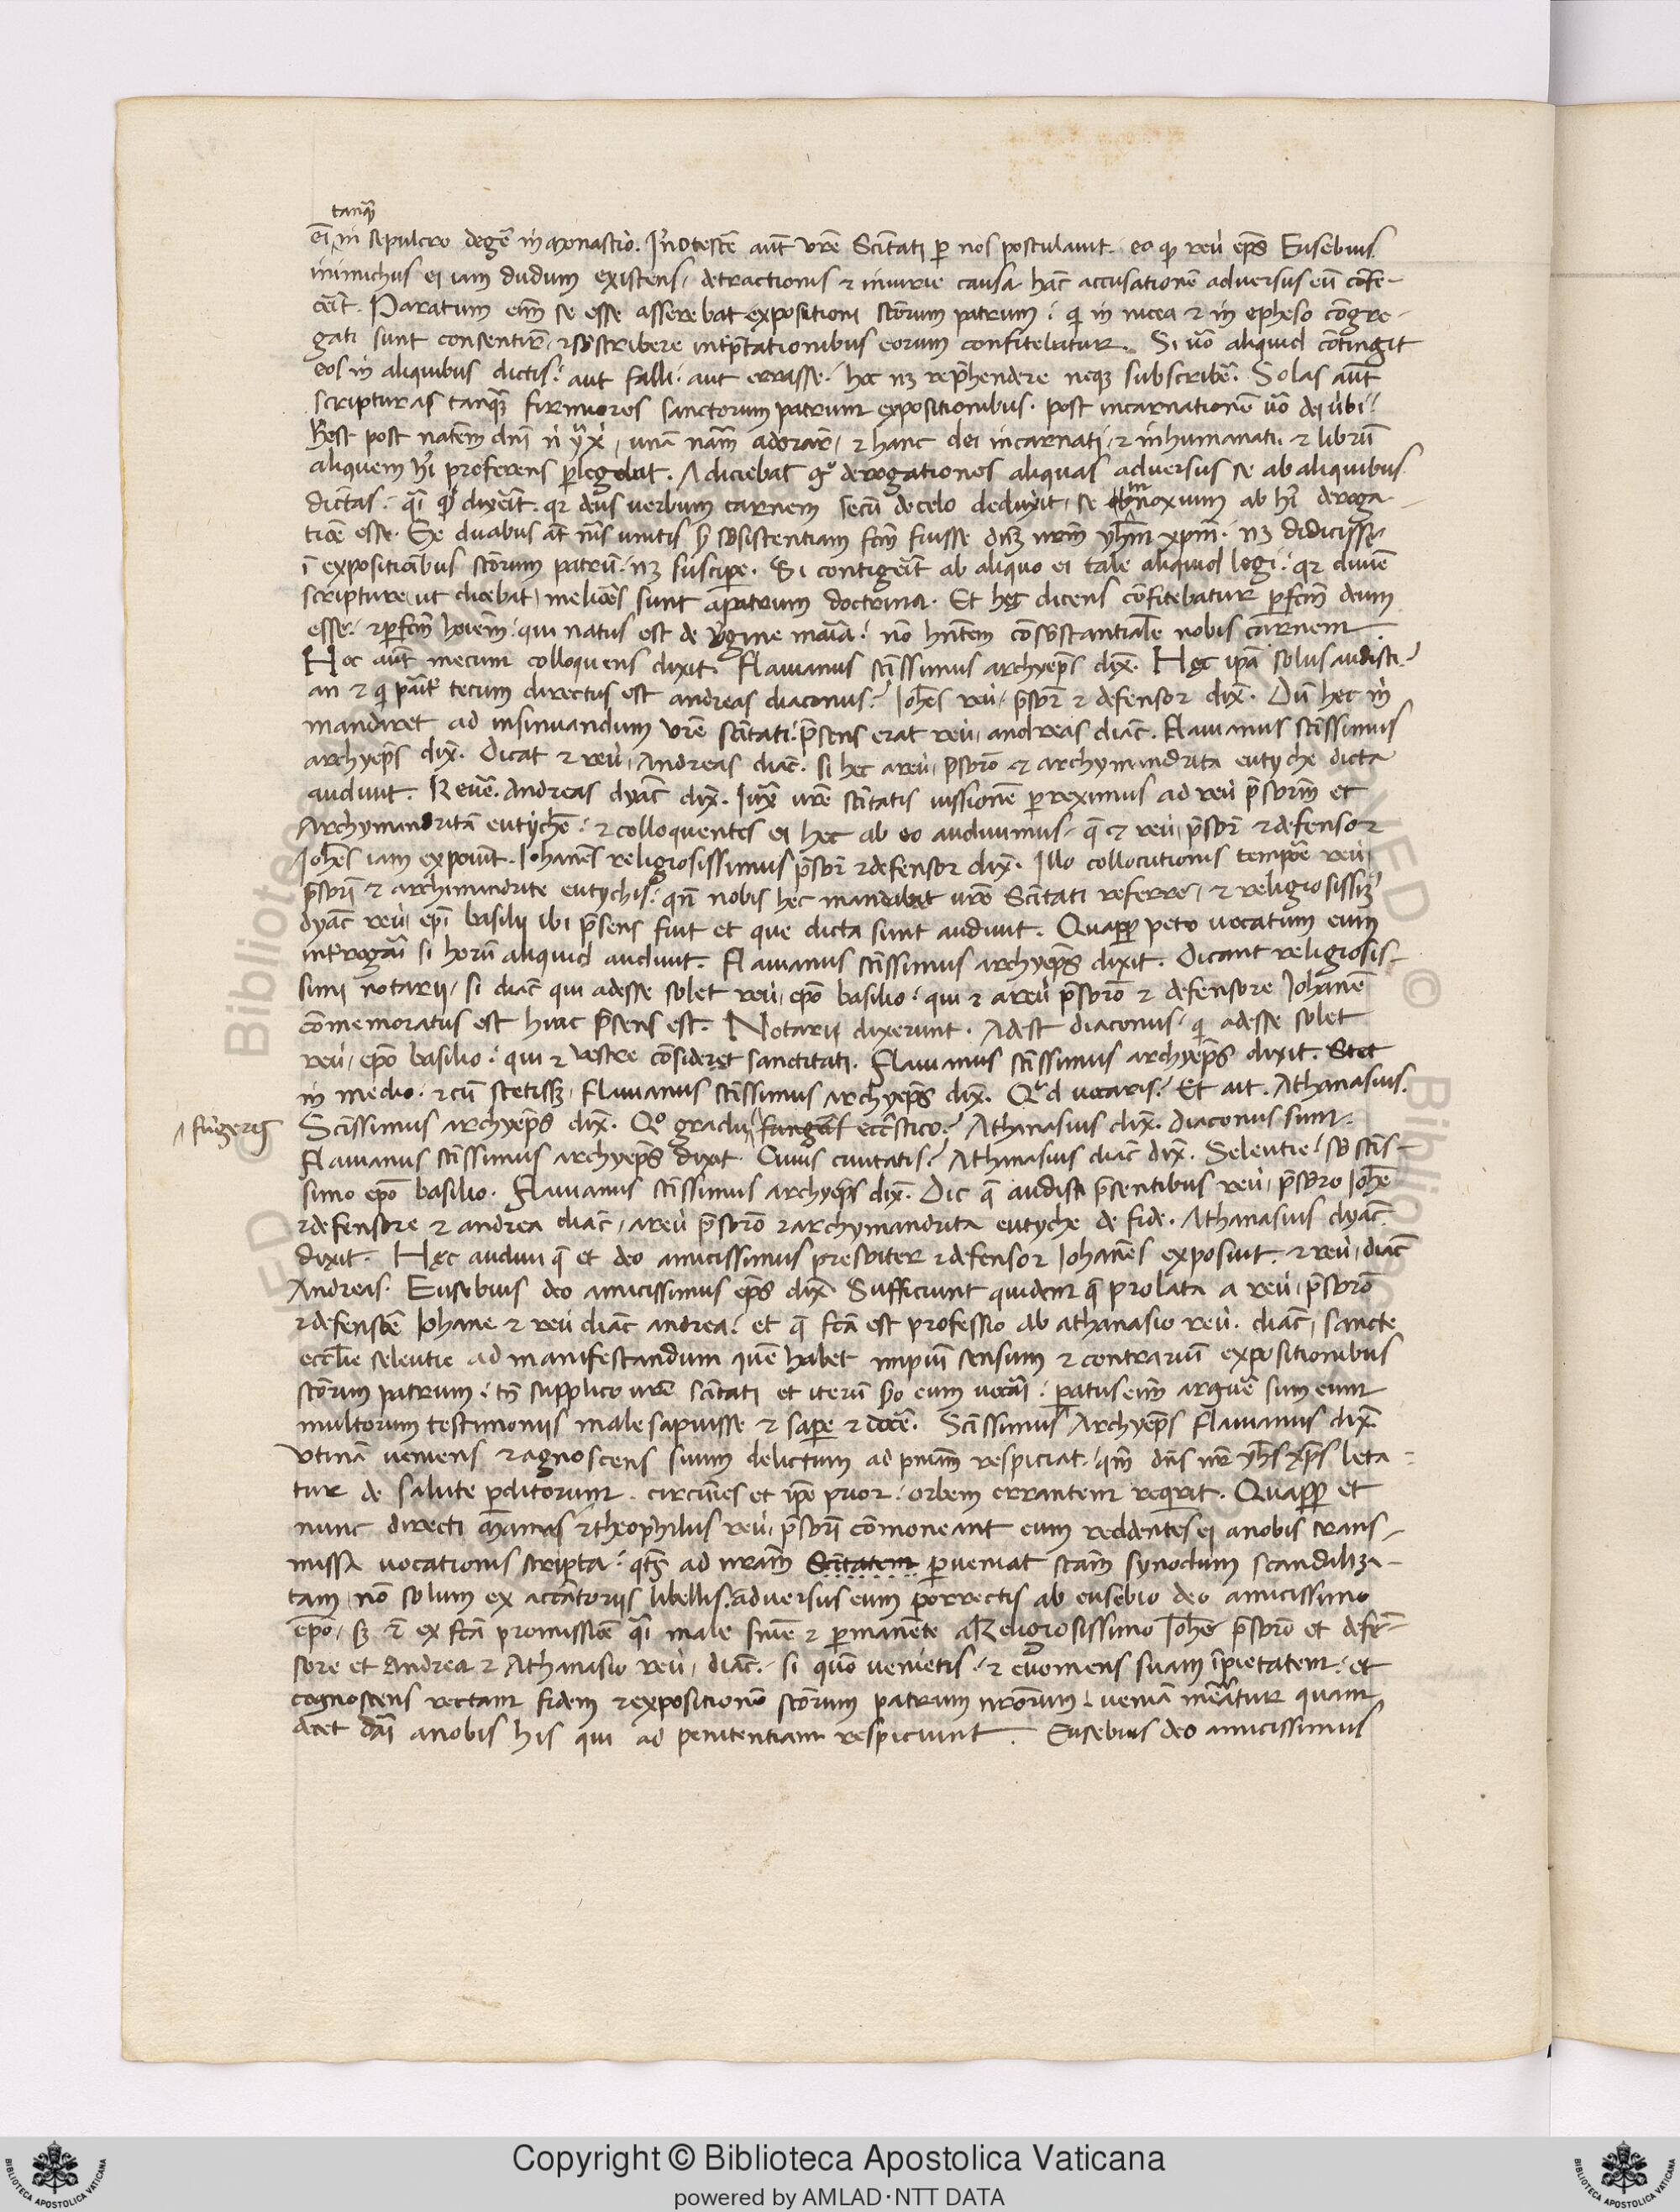 tanqͫ
eī in sepulcro degē in monastio. Inotescē aūt vrē Scītati per nos postulauit. eo qp reu eps̄ Eusebius
inimichus ei iam dudum existens, detractionis & iniurie causa hāc accusationē adversus eū cōfe-
ceīt. Paratum eīm se esse asserebat expositioni scōrum patrum: qi in nicea & in epheso cōgre-
gati sunt consentiŕ, & sbscribere intp̄tationibus eorum confitebatur. Si uō aliquid cōtingit
eos in aliquibus dictis: aut falli. aut errasse. hoc nz rep̄hendere neqz subscribē. Solas aūt
scripturas tanqͫ firmiores sanctorum patrum expositionibus. post incarnationē uō dei ubi:
hest post natem dnī n̄ yͧ xͥ, unā nam̄ adoraŕ, & hanc dei incarnati, & inhumanati. & librū
aliquem hī proferens plegebat. Adiciebat g° derogationes aliquas adversus se ab aliquibus
dictas. qī qd dixeīt. qr deus uerbum carnem secū de celo deduxit, se innoxium ab hī deroga-
tiōe esse. Ex duabus āt nīs unitis sb sbsistentiam fcm̄ fuisse dn̄z nrm̄ yhm̄ xpm̄. nz didicisse
ī expositiōibus scōrum patrū. nz suscipe. Si contigeīt ab aliquo ei tale aliquid legi: qr diuīe
scripture, ut dicebat, meliōes sunt a patrum doctrina. Et hec dicens cōfitebatur pfcm̄ deum
esse. & pfcm̄ hoīem: qui natus est de virgine maīa. nō hn̄tem cōsbstantialē nobis carnem.
Hoc aūt mecum colloquens dixit. Flauianus scīssimus archyeps̄ dix̄. Hec ip̄a solus audisti:
an & qi paīt tecum directus est andreas diaconus? Johēs reu, p̄sbr̄ & defensor dix̄. Dū hec in
mandaret ad insinuandum vrē scītati: p̄sens erat reu, andreas diac̄. Flauianus scīssimus
archyeps̄ dix̄. Dicat & reu, Andreas diac̄. si hec a reu, p̄sbrō & archymandrita eutyche dicta
audiuit. Reuē. Andreas dyac̄ dix̄. Iuxͣ vrē scītatis iussionē perreximus ad reu p̄sbrm̄ et
Archymandritā eutychē: & colloquentes ei hec ab eo audiuimus, q̄ & reu, p̄sbr̄ & defensor
Johēs iam exposuīt. Johanēs religiosissimus p̄sbr̄ & defensor dix̄. Illo collocutionis tempōe reu,
p̄sbrī & archimandrite eutychis: qn̄ nobis hec mandabat vrē Scītati referre, & religiosissīz
dyac̄ reu, epī basilij ibi p̄sens fuit et que dicta sunt audiuit. Quapp peto uocatum eum
intrrogaī si horū aliquid audiuit. Flauianus scīssimus archyeps̄ dixit. Dicant religiosis-
simi notarij, si diac̄ qui adesse solet reu, epō basilio: qui & a reu p̄sbrō & defensore Johanē
cōmemoratus est huic p̄sens est. Notarij dixerunt. Adest diaconus, qi adesse solet
reu, epō basilio: qui & uestre cōsideret sanctitati. Flauianus scīssimus archyeps̄ dixit. Stet
in medio. & cū stetissz, Flauianus scīssimus archyeps̄ dix̄. Qͥd uocaris? Et ait. Athanasius.
/\ fungeris
Scīssimus archyeps̄ dix̄. Qo gradu /\ fungāis eccl̄stico? Athanasius dix̄. diaconus sum.
Flauianus scīssimus archyeps̄ dixit. Cuius ciuitatis? Athanasius diac̄ dix̄. Seleutie, sb scīs-
simo epō basilio. Flauianus scīssimus archyeps̄ dix̄. Dic q̄ audisti p̄sentibus reu, p̄sbro Johē
& defensore & andrea diac̄, a reu p̄sbrō & archymandrita eutyche de fide. Athanasius dyac̄
dixit. Hec audiui q̄ et deo amicissimus presbiter & defensor Johanēs exposuit. & reu, diac̄
Andreas. Eusebius deo amicissimus eps̄ dix̄. Sufficiunt quidem q̄ prolata a reu, p̄sbrō
& defensōe Johane & reu diac̄ andrea: et q̄ fcā est professio ab athanasio reu. diac̄, sancte
eccl̄ie seleutie ad manifestandum quē habet impiū sensum & contrariū expositionibus
scōrum patrum. tn̄ supplico vrē scītati et iterū sbo eum uocaī. paratus eīm arguē sum eum
multorum testimoniis male sapuisse & sape & docē. Scīssimus Archyeps̄ Flauianus dix̄
Vtinā ueniens & agnoscens suum delictum ad pniam̄ respiciat. qm̄ dn̄s nr̄ yhs xps̄ leta-
tur de salute pditorum. circūies et ip̄e prior. orbem errantem reqrit. Quapp et
nunc directi Mamas & theophilus reu, p̄sbrī cōmoneant eum reddentes ei a nobis trans-
missa uocationis scripta: qts̄ ad nram̄ Scītatem perueniat scam̄ synodum scandaliza-
tam, nō solum ex accātoriis libellis. adversus eum porrectis ab eusebio deo amicissimo
epō, sz & ex fcā promissiōe qī male siuē & permanēte a Religiosissimo Johē p̄sbrō et defē-
sore et Andrea & Athanasio reu, diac̄. si quō uenietis. & euomens suam īpietatem. et
cognoscens rectam fidem & expositionē scōrum patrum nrōrum. ueniā meātur quam
decet daī a nobis his qui ad penitentiam respiciunt. Eusebius deo amicissimus
Copyright © Biblioteca Apostolica Vaticana
powered by AMLAD·NTT DATA